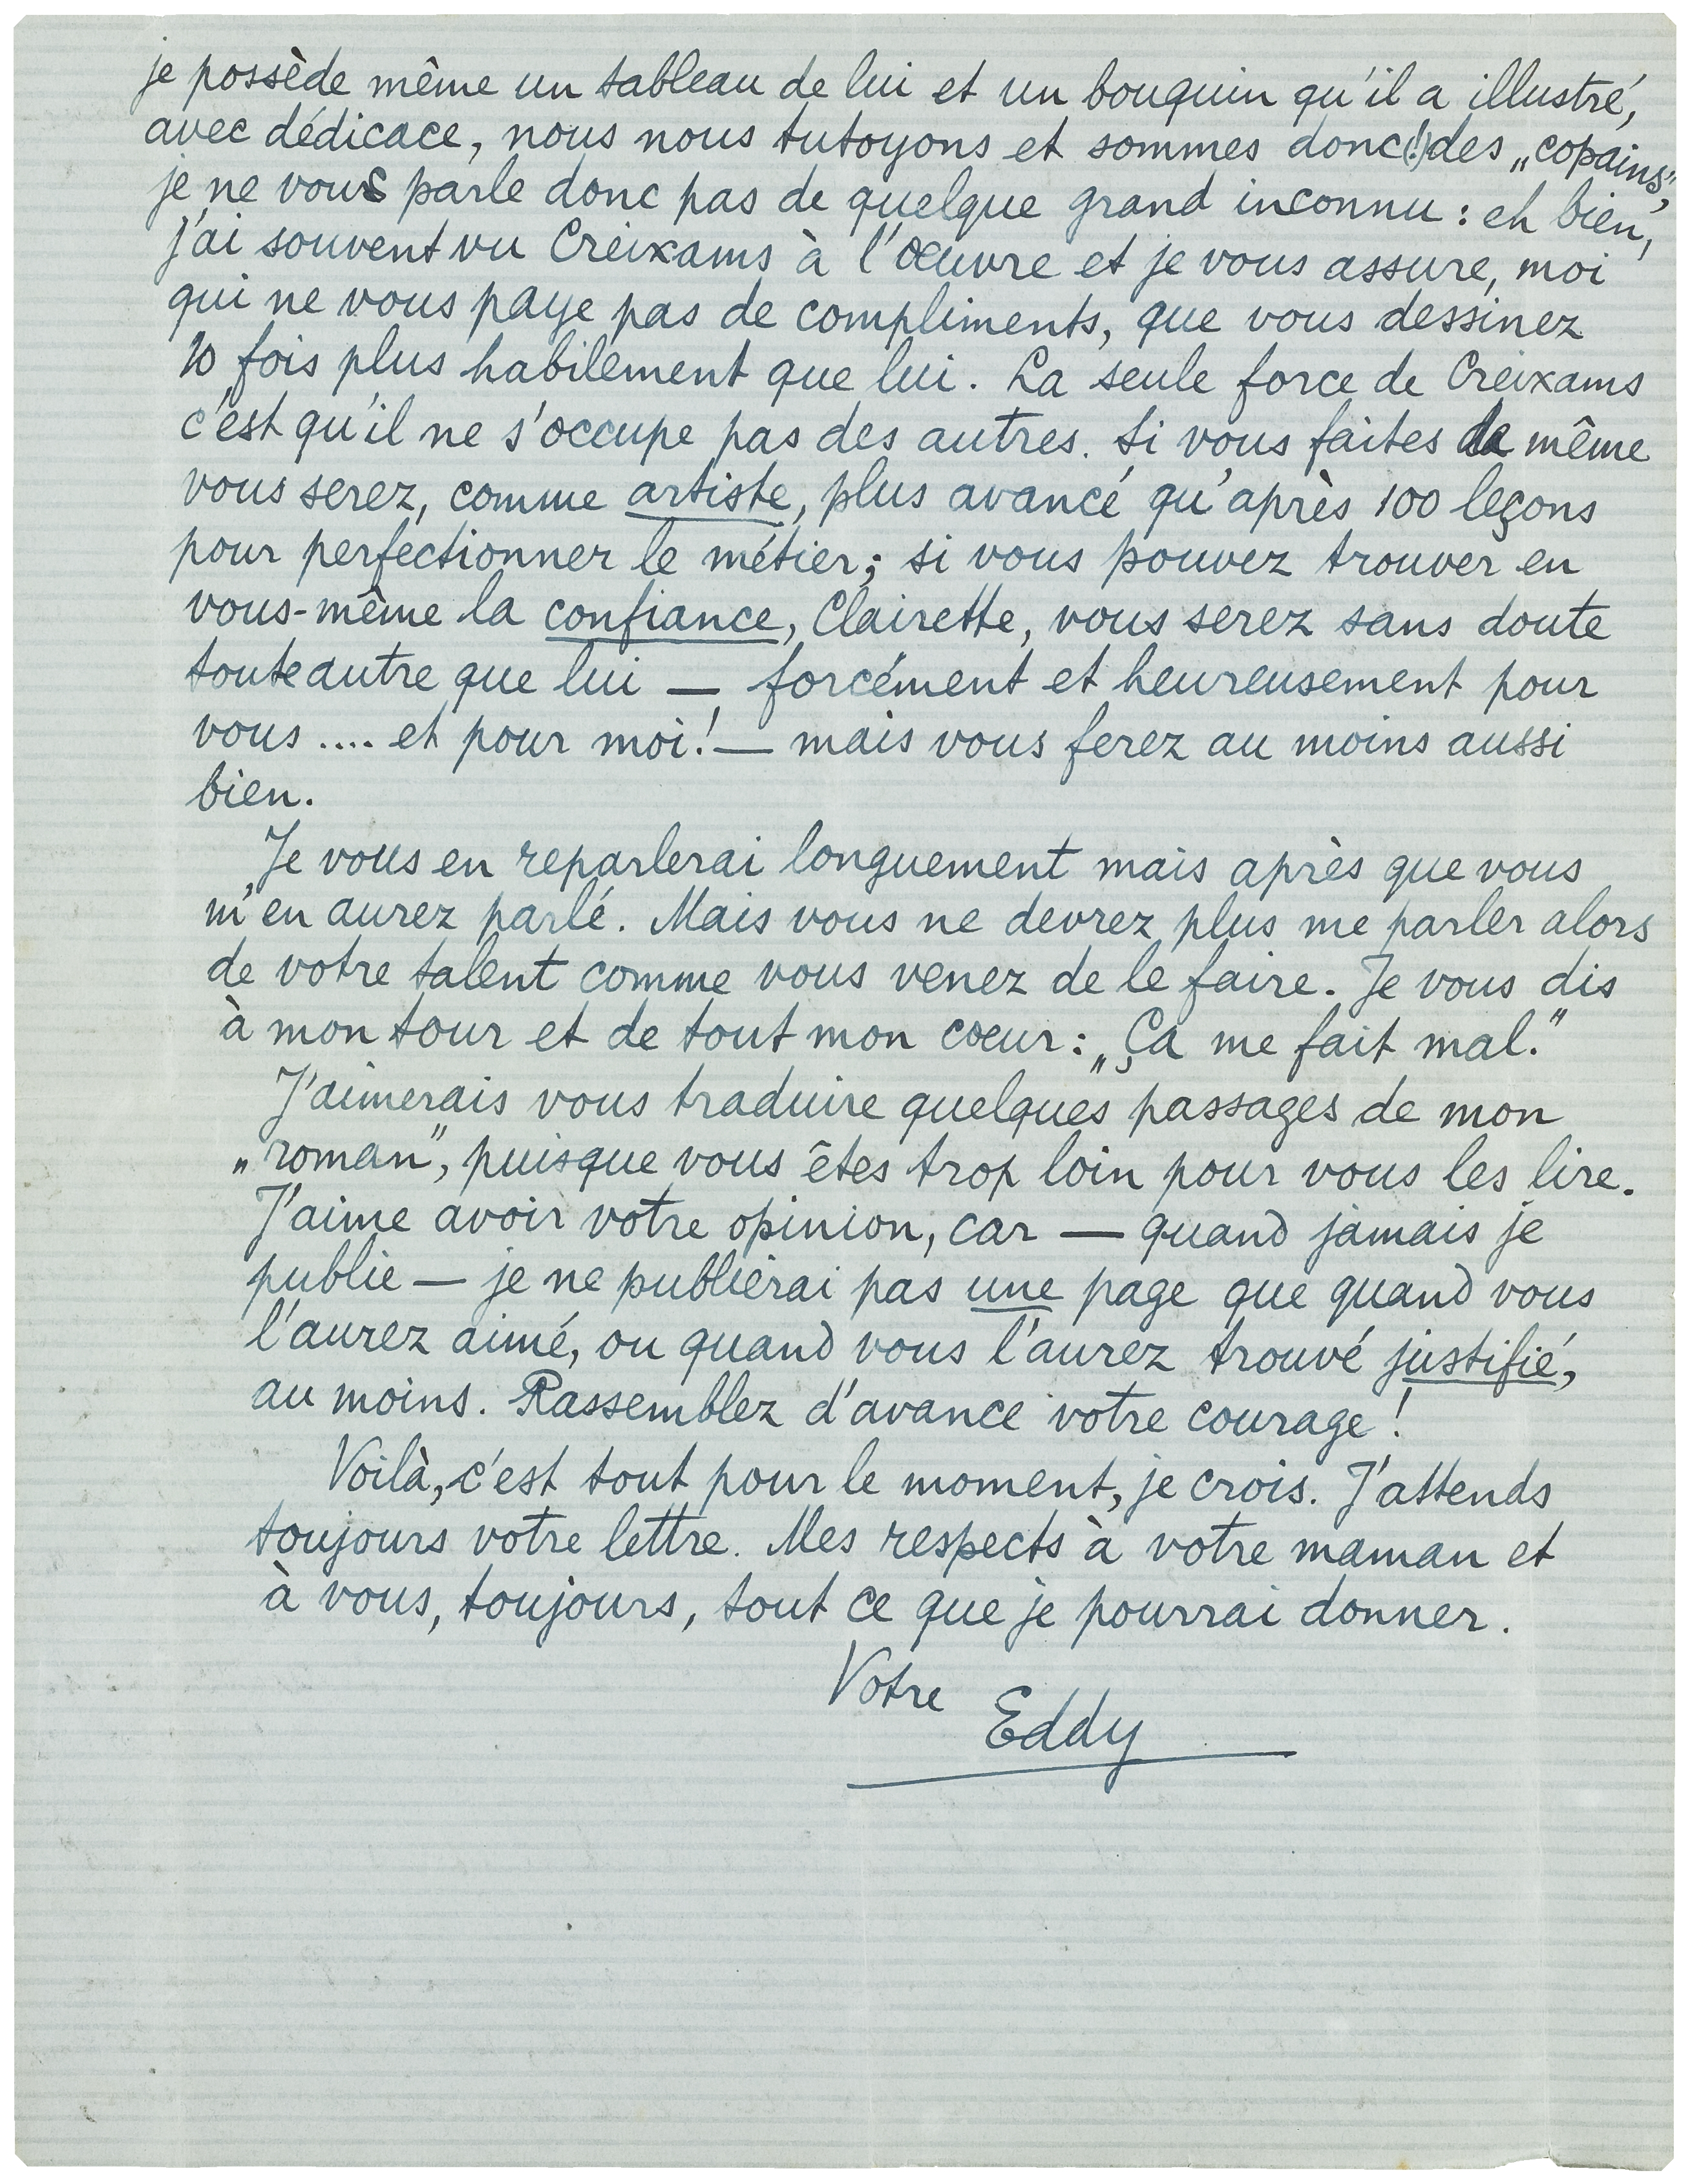 je possède même un tableau de lui et un bouquin qu'il a illustré,
avec dédicace, nous nous tutoyons et sommes donc(!) des „copains",
je ne vous parle donc pas de quelque grand inconnu : eh bien,
j'ai souvent vu Creixams à l'œuvre et je vous assure, moi
qui ne vous paye pas de compliments, que vous dessinez
10 fois plus habilement que lui. La seule force de Creixams
c'est qu'il ne s'occupe pas des autres. Si vous faites de même
vous serez, comme artiste, plus avancé qu'après 100 leçons
pour perfectionner le métier; si vous pouvez trouver en
vous-même la confiance, Clairette, vous serez sans doute
toute autre que lui — forcément et heureusement pour
vous .... et pour moi! — mais vous ferez au moins aussi
bien.
Je vous en reparlerai longuement mais après que vous
m'en aurez parlé. Mais vous ne devrez plus me parler alors
de votre talent comme vous venez de le faire. Je vous dis
à mon tour et de tout mon cœur : „Ça me fait mal."
J'aimerais vous traduire quelques passages de mon
„roman", puisque vous êtes trop loin pour vous les lire.
J'aime avoir votre opinion, car — quand jamais je
publie — je ne publierai pas une page que quand vous
l'aurez aimé, ou quand vous l'aurez trouvé justifié,
au moins. Rassemblez d'avance votre courage !
Voilà, c'est tout pour le moment, je crois. J'attends
toujours votre lettre. Mes respects à votre maman et
à vous, toujours, tout ce que je pourrai donner.
Votre
Eddy